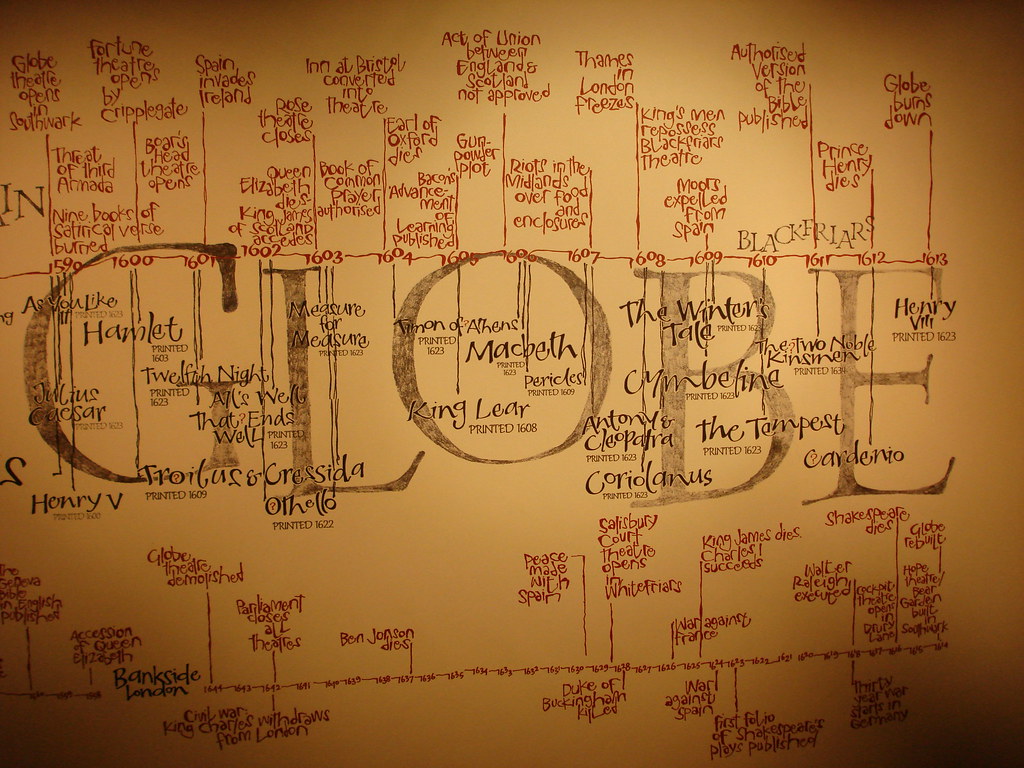 Globe
theatre
opens
in
Southwark
Fortune
theatre
opens
by
Cripplegate
Spain
invades
Ireland
Inn at Bristol
converted
into
theatre
Act of Union
between
England &
Scotland
not approved
Thames
in
London
freezes
Authorised
version
of the
Bible
published
Globe
burns
down
Threat
of third
Armada
Boar's
head
theatre
opens
Rose
theatre
closes
Earl of
Oxford
dies
Gun-
powder
plot
King's men
repossess
Blackfriars
Theatre
Prince
Henry
dies
Nine books of
satirical verse
burned
Queen
Elizabeth
dies
King James
of Scotland
accedes
Book of
Common
prayer
authorised
Bacon's
'Advance-
ment
of
Learning
published
Riots in the
Midlands
over food
and
enclosures
Moors
expelled
from
Spain
IN
BLACKFRIARS
1599 1600 1601 1602 1603 1604 1605 1606 1607 1608 1609 1610 1611 1612 1613
GLOBE
As You Like
PRINTED 1623
Hamlet
PRINTED
1603
Measure
for
Measure
PRINTED 1623
Timon of Athens
PRINTED
1623
Macbeth
PRINTED
1623
The Winter's
Tale
PRINTED 1623
Henry
VIII
PRINTED 1623
The Two Noble
Kinsmen
PRINTED 1634
Julius
Caesar
PRINTED 1623
Twelfth Night
PRINTED
1623
All's Well
That Ends
Well
PRINTED
1623
Pericles
PRINTED 1609
Cymbeline
PRINTED 1623
King Lear
PRINTED 1608
Antony &
Cleopatra
PRINTED 1623
The Tempest
PRINTED 1623
Henry V
PRINTED 1600
Troilus & Cressida
PRINTED 1609
Othello
PRINTED 1622
Coriolanus
PRINTED 1623
? Cardenio
The
Geneva
Bible
in English
published
Accession
of Queen
Elizabeth
Globe
theatre
demolished
Parliament
closes
all
theatres
Ben Jonson
dies
Peace
made
with
Spain
Salisbury
Court
Theatre
opens
in
Whitefriars
King James dies.
Charles I
succeeds
War against
France
Walter
Raleigh
executed
Shakespeare
dies
Cockpit
theatre
opens
in
Drury
Lane
Globe
rebuilt
Hope
theatre/
Bear
Garden
built
in
Southwark
Bankside
London
1644 1643 1642 1641 1639 1638 1637 1636 1635 1634 1633 1632 1631 1630 1629 1628 1627 1626 1625 1624 1623 1622 1621 1620 1619 1618 1617 1616 1615 1614
Civil war.
King Charles withdraws
from London
Duke of
Buckingham
killed
War
against
Spain
First folio
of Shakespeare's
plays published
Thirty
year war
starts in
Germany